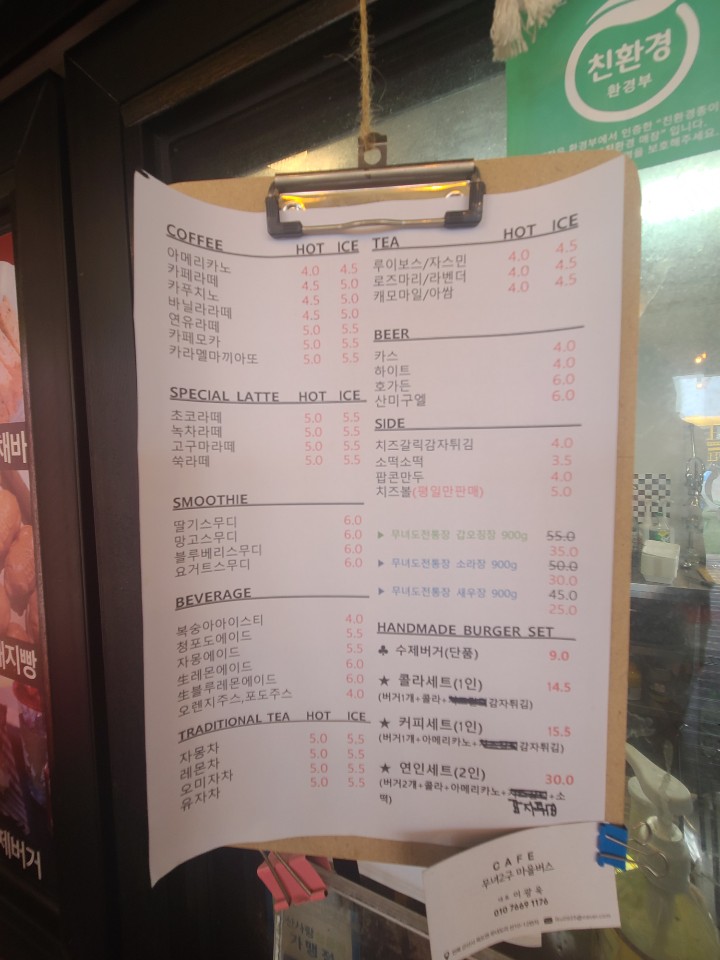 친환경
환경부
COFFEE HOT ICE
아메리카노 4.0 4.5
카페라떼 4.5 5.0
카푸치노 4.5 5.0
바닐라라떼 4.5 5.0
연유라떼 5.0 5.5
카페모카 5.0 5.5
카라멜마끼아또 5.0 5.5
SPECIAL LATTE HOT ICE
초코라떼 5.0 5.5
녹차라떼 5.0 5.5
고구마라떼 5.0 5.5
쑥라떼 5.0 5.5
SMOOTHIE
딸기스무디 6.0
망고스무디 6.0
블루베리스무디 6.0
요거트스무디 6.0
BEVERAGE
복숭아아이스티 4.0
청포도에이드 5.5
자몽에이드 5.5
生레몬에이드 6.0
生블루레몬에이드 6.0
오렌지주스,포도주스 4.0
TRADITIONAL TEA HOT ICE
자몽차 5.0 5.5
레몬차 5.0 5.5
오미자차 5.0 5.5
유자차 5.0 5.5
TEA HOT ICE
루이보스/자스민 4.0 4.5
로즈마리/라벤더 4.0 4.5
캐모마일/아쌈 4.0 4.5
BEER
카스 4.0
하이트 4.0
호가든 6.0
산미구엘 6.0
SIDE
치즈갈릭감자튀김 4.0
소떡소떡 3.5
팝콘만두 4.0
치즈볼(평일만판매) 5.0
▶ 무녀도전통장 갑오징장 900g 55.0
35.0
▶ 무녀도전통장 소라장 900g 50.0
30.0
▶ 무녀도전통장 새우장 900g 45.0
25.0
HANDMADE BURGER SET
♣ 수제버거(단품) 9.0
★ 콜라세트(1인) 14.5
(버거1개+콜라+감자튀김)
★ 커피세트(1인) 15.5
(버거1개+아메리카노+감자튀김)
★ 연인세트(2인) 30.0
(버거2개+콜라+아메리카노+ +소
떡) 감자튀김
CAFE
무녀2구 마을버스
대표 이광욱
010 7669 1176